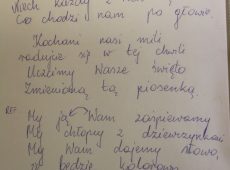 Niech każdy z nas
Co chodzi nam po głowie.
Kochani nasi mili
radując się w tej chwili
Uczcimy Wasze święto
Zmienioną tą piosenką.
REF. My ją Wam zaśpiewamy
My chłopcy z dziewczynkami
My Wam dajemy słowo,
że będzie kolorowo